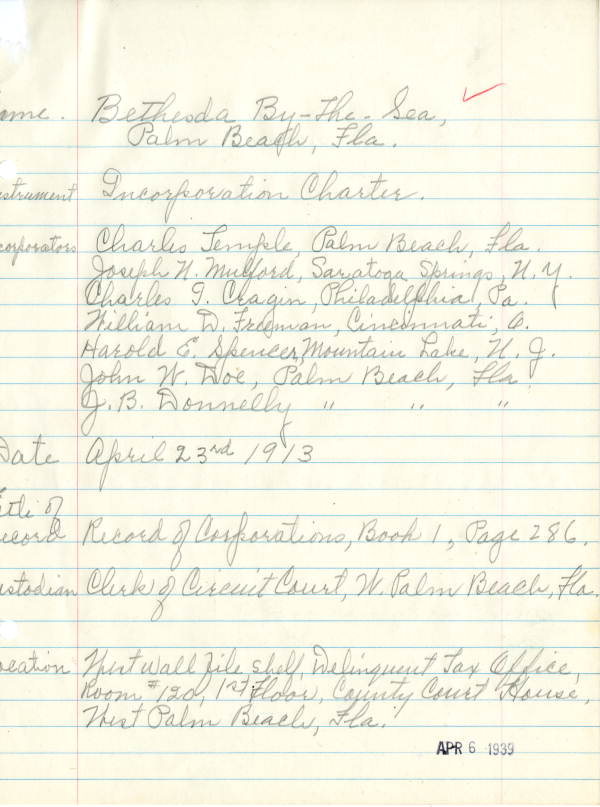 ame. Bethesda By-The-Sea,
Palm Beach, Fla.
strument Incorporation Charter.
corporators Charles Temple, Palm Beach, Fla.
Joseph H. Mulford, Saratoga Springs, N.Y.
Charles I. Cragin, Philadelphia, Pa.
William D. Freeman, Cincinnati, O.
Harold E. Spencer, Mountain Lake, N.J.
John W. Doe, Palm Beach, Fla.
J.B. Donnelly " " "
Date April 23rd 1913
itle of
ecord Record of Corporations, Book 1, Page 286.
ustodian Clerk of Circuit Court, W. Palm Beach, Fla.
ocation West wall file shelf, Delinquent Tax Office,
Room #120, 1st Floor, County Court House,
West Palm Beach, Fla.
APR 6 1939